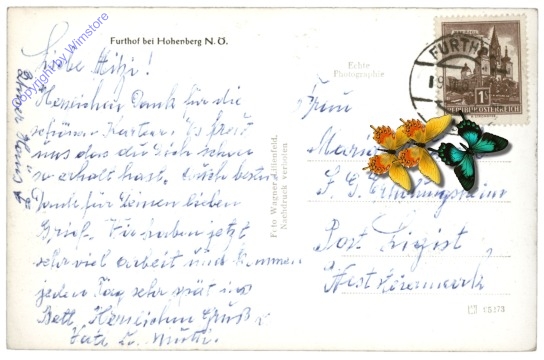 Furthof bei Hohenberg N. Ö.
Liebe Mitzi!
Herzlichen Dank für die
schönen Karten. Es freut
uns das du dich schon
so erholt hast. Auch besten
Dank für deinen lieben
Brief. Wir haben jetzt
sehr viel arbeit und kommen
jeden Tag sehr spät ins
Bett. Herzlichen Gruß
Vati u. Mutti.
Copyright by Wimstore
Echte
Photographie
Foto Wagner Lilienfeld,
Nachdruck verboten
FURTHOF
REPUBLIK ÖSTERREICH
Frau
Maria
Erholungsheim
Post Ligist
Weststeiermark